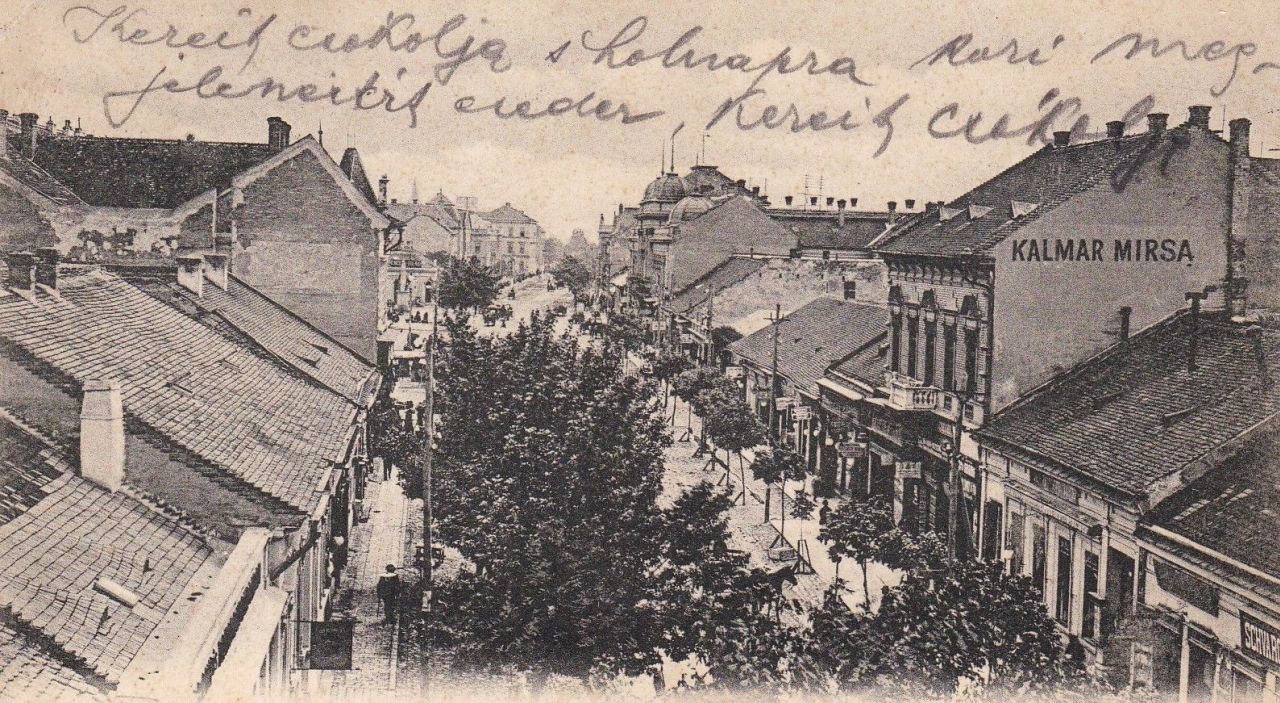 Kereit csokolja s holnapra kari meg-
jeleneitét
Kereit csókolja
KALMAR MIRSA
SCHVAR